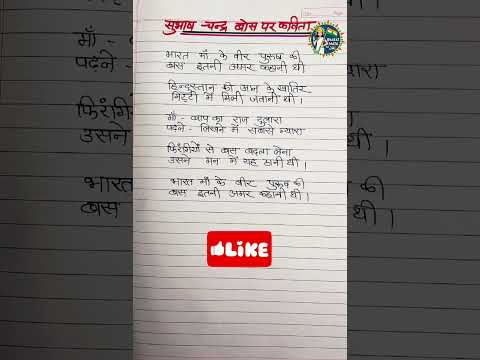 सुभाष चन्द्र बोस पर कविता
भारत माँ के वीर पुरुष की
बस इतनी अमर कहानी थी
हिन्दुस्तान की आन के खातिर
मिट्टी में मिली जवानी थी।
माँ - बाप का राज दुलारा
पढ़ने - लिखने में सबसे न्यारा
फिरंगियों से बस बदला लेना
उसने मन में यह ठानी थी।
भारत माँ के वीर पुरुष की
बस इतनी अमर कहानी थी।
LIKE